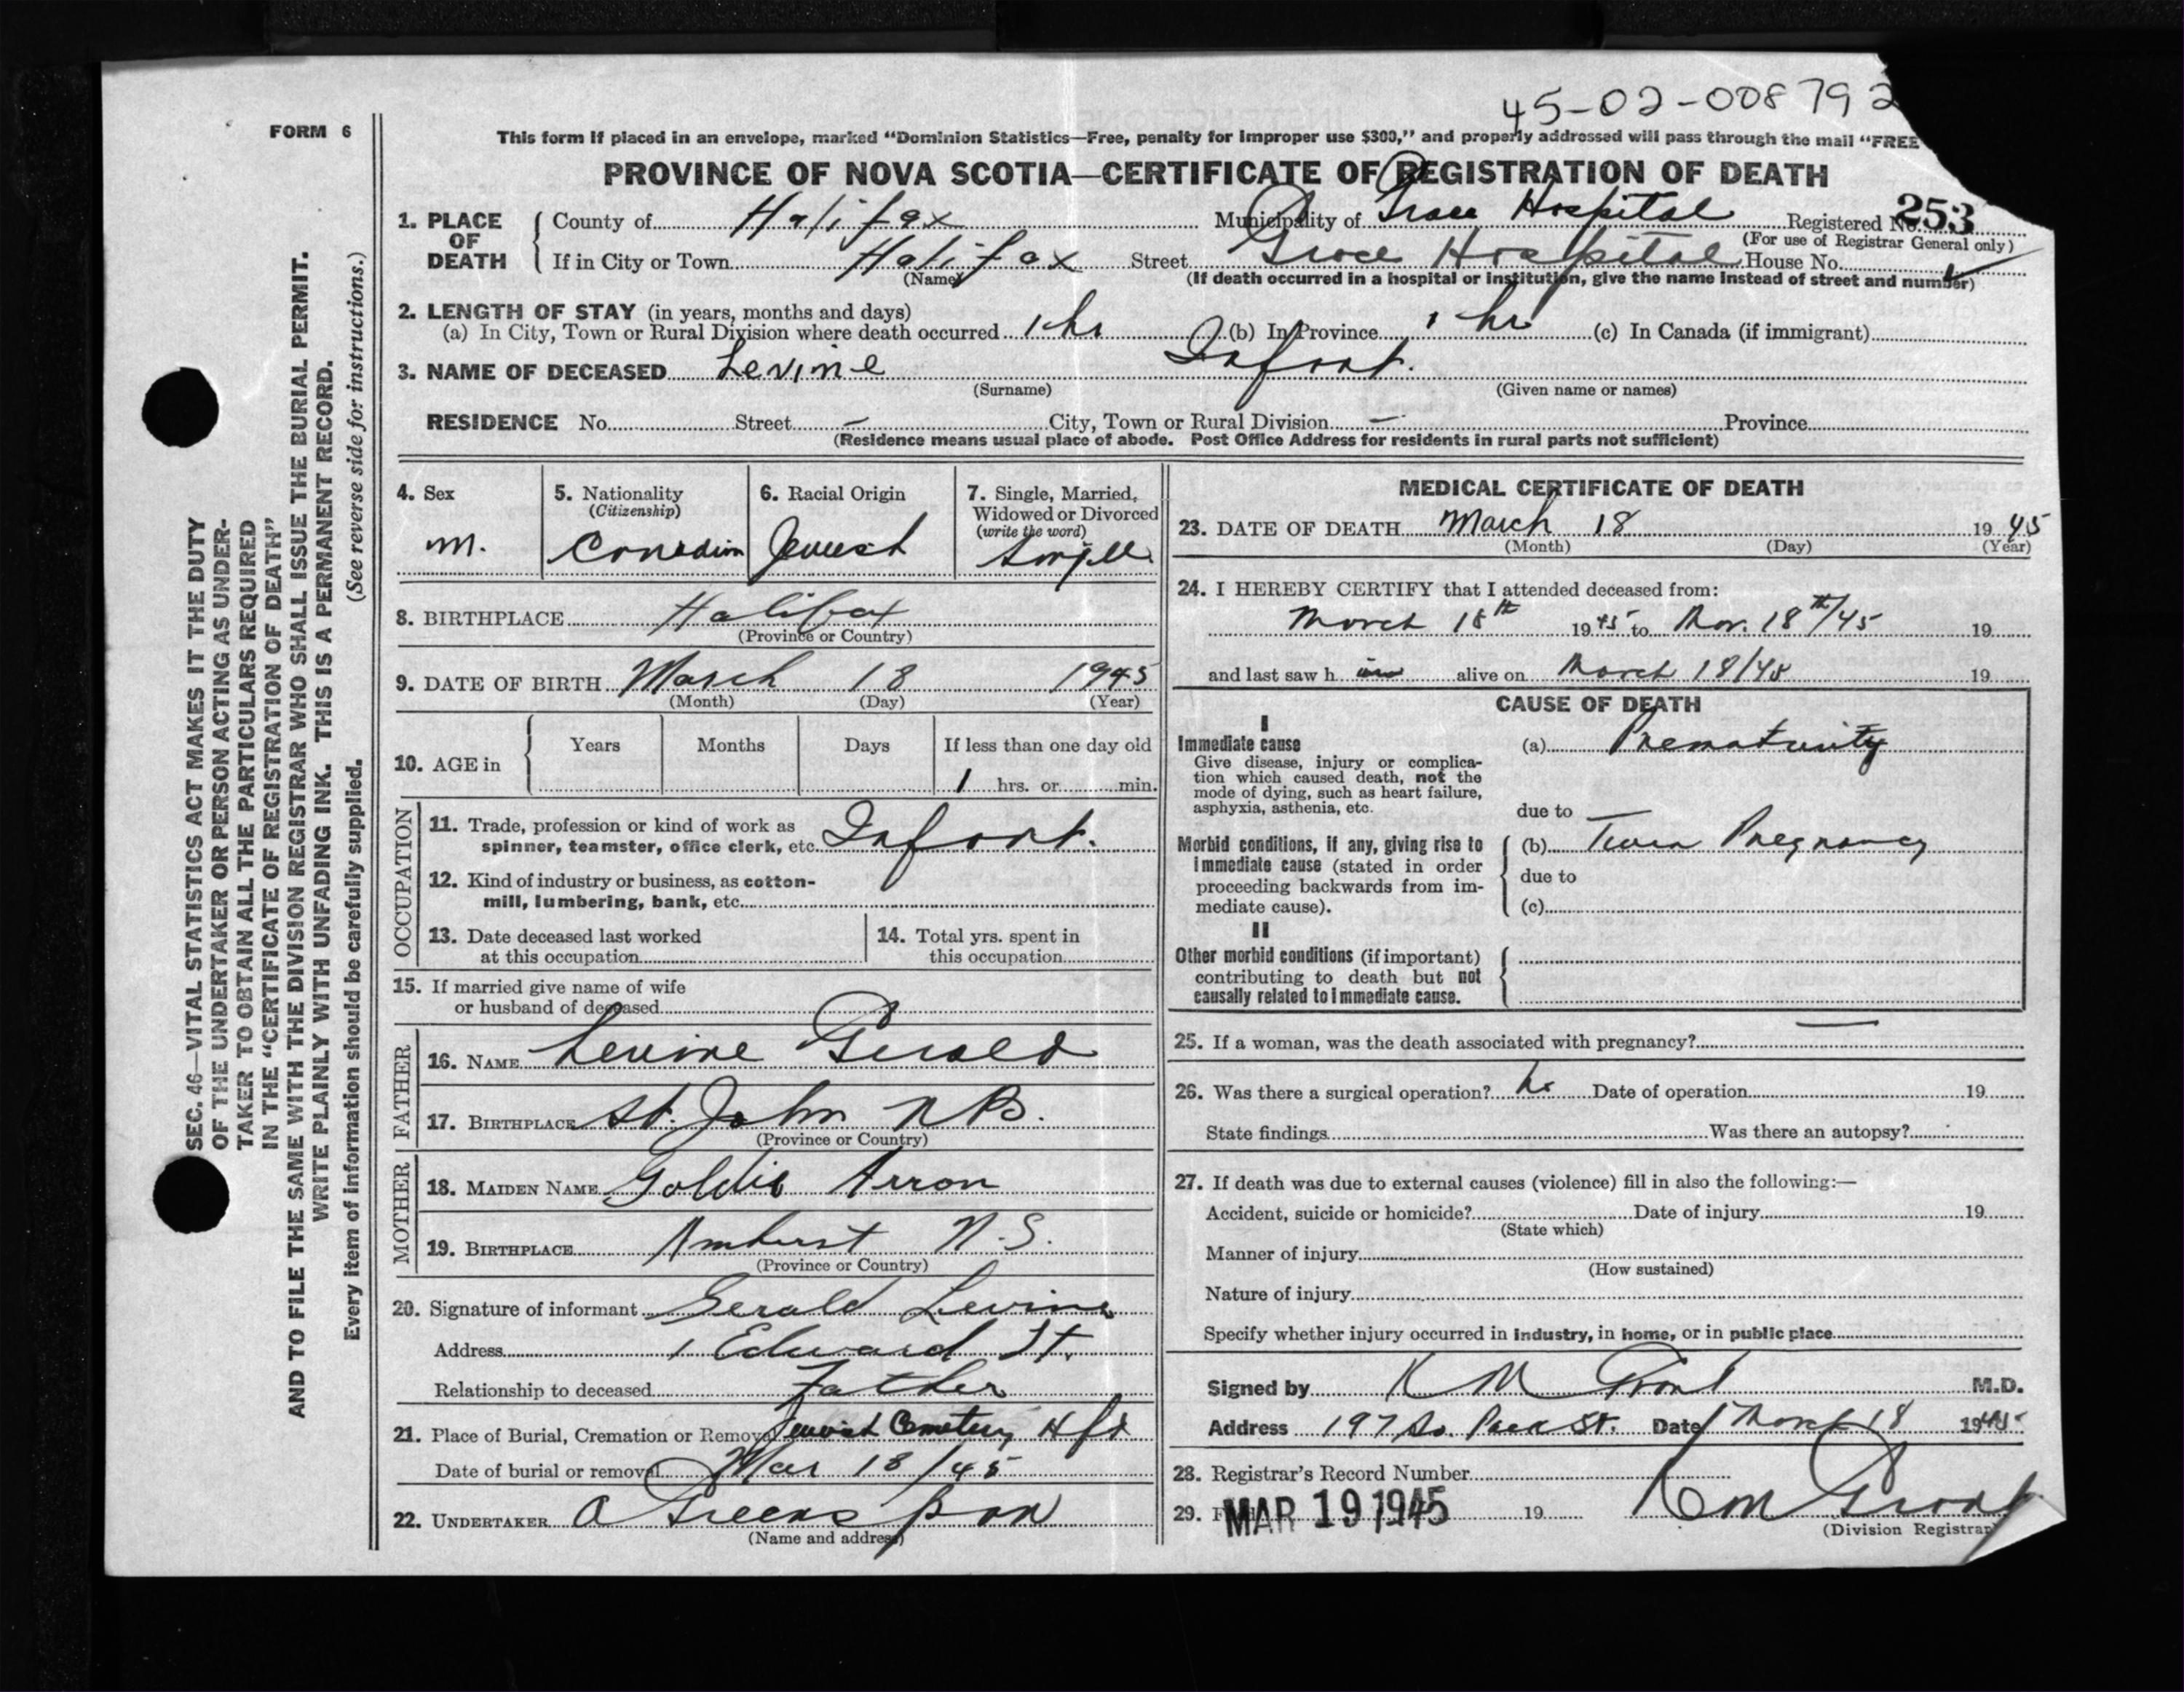 45-02-008792
FORM 6
This form if placed in an envelope, marked "Dominion Statistics—Free, penalty for improper use $300," and properly addressed will pass through the mail "FREE
PROVINCE OF NOVA SCOTIA—CERTIFICATE OF REGISTRATION OF DEATH
1. PLACE OF DEATH County of Halifax Municipality of Grace Hospital Registered No. 253
(For use of Registrar General only)
If in City or Town Halifax Street Grace Hospital House No.
(Name) (If death occurred in a hospital or institution, give the name instead of street and number)
2. LENGTH OF STAY (in years, months and days)
(a) In City, Town or Rural Division where death occurred 1 hr (b) In Province 1 hr (c) In Canada (if immigrant)
3. NAME OF DECEASED Levine Infant.
(Surname) (Given name or names)
RESIDENCE No. Street – City, Town or Rural Division – Province
(Residence means usual place of abode. Post Office Address for residents in rural parts not sufficient)
4. Sex
m.
5. Nationality
(Citizenship)
Canadian
6. Racial Origin
Jewish
7. Single, Married,
Widowed or Divorced
(write the word)
Single
8. BIRTHPLACE Halifax
(Province or Country)
9. DATE OF BIRTH March 18 1945
(Month) (Day) (Year)
10. AGE in Years Months Days If less than one day old
1 hrs. or min.
OCCUPATION
11. Trade, profession or kind of work as
spinner, teamster, office clerk, etc. Infant.
12. Kind of industry or business, as cotton-
mill, lumbering, bank, etc.
13. Date deceased last worked
at this occupation
14. Total yrs. spent in
this occupation
15. If married give name of wife
or husband of deceased
FATHER
16. NAME Levine Gerald
17. BIRTHPLACE St. John N B.
(Province or Country)
MOTHER
18. MAIDEN NAME Goldie Arron
19. BIRTHPLACE Amherst N.S.
(Province or Country)
20. Signature of informant Gerald Levine
Address 1 Edward St.
Relationship to deceased Father
21. Place of Burial, Cremation or Removal Jewish Cemetery Hfx
Date of burial or removal Mar 18/45
22. UNDERTAKER A Greenspon
(Name and address)
MEDICAL CERTIFICATE OF DEATH
23. DATE OF DEATH March 18 1945
(Month) (Day) (Year)
24. I HEREBY CERTIFY that I attended deceased from:
March 18th 1945 to Mar. 18th/45 19
and last saw h im alive on March 18/45 19
CAUSE OF DEATH
I
Immediate cause
Give disease, injury or complica-
tion which caused death, not the
mode of dying, such as heart failure,
asphyxia, asthenia, etc.
(a) Prematurity
due to
Morbid conditions, if any, giving rise to
immediate cause (stated in order
proceeding backwards from im-
mediate cause).
(b) Twin Pregnancy
due to
(c)
II
Other morbid conditions (if important)
contributing to death but not
causally related to immediate cause.
25. If a woman, was the death associated with pregnancy?
26. Was there a surgical operation? No Date of operation 19
State findings Was there an autopsy?
27. If death was due to external causes (violence) fill in also the following:—
Accident, suicide or homicide? Date of injury 19
(State which)
Manner of injury
(How sustained)
Nature of injury
Specify whether injury occurred in industry, in home, or in public place
Signed by K M Grant M.D.
Address 197 So. Park St. Date March 18 1945
28. Registrar's Record Number
29. MAR 19 1945 19 K M Grant
(Division Registrar)
SEC. 46—VITAL STATISTICS ACT MAKES IT THE DUTY
OF THE UNDERTAKER OR PERSON ACTING AS UNDER-
TAKER TO OBTAIN ALL THE PARTICULARS REQUIRED
IN THE "CERTIFICATE OF REGISTRATION OF DEATH"
AND TO FILE THE SAME WITH THE DIVISION REGISTRAR WHO SHALL ISSUE THE BURIAL PERMIT.
WRITE PLAINLY WITH UNFADING INK. THIS IS A PERMANENT RECORD.
Every item of information should be carefully supplied. (See reverse side for instructions.)